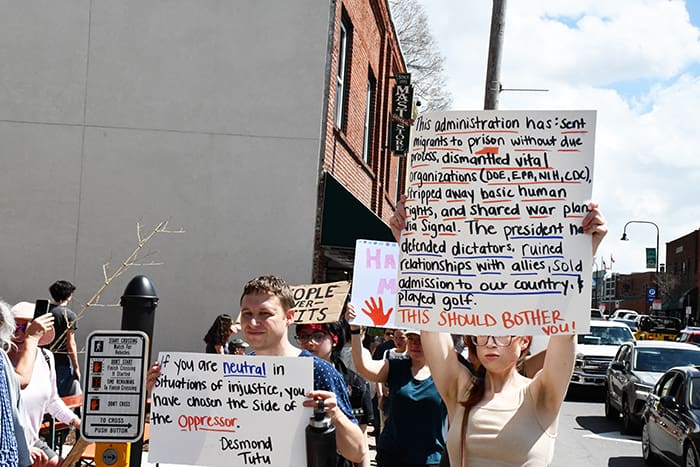 MAST
STORE
This administration has: sent
migrants to prison without due
process, dismantled vital
organizations (DOE, EPA, NIH, CDC),
stripped away basic human
rights, and shared war plan
via Signal. The president ha
defended dictators, ruined
relationships with allies, sold
admission to our country, &
played golf.
THIS SHOULD BOTHER YOU!
HA
M
OPLE
VER
ITS
If you are neutral in
situations of injustice, you
have chosen the side of
the oppressor.
Desmond
Tutu
START CROSSING
Watch For
Vehicles
DON'T START
Finish Crossing
If Started
TIME REMAINING
To Finish Crossing
DON'T CROSS
TO CROSS
PUSH BUTTON